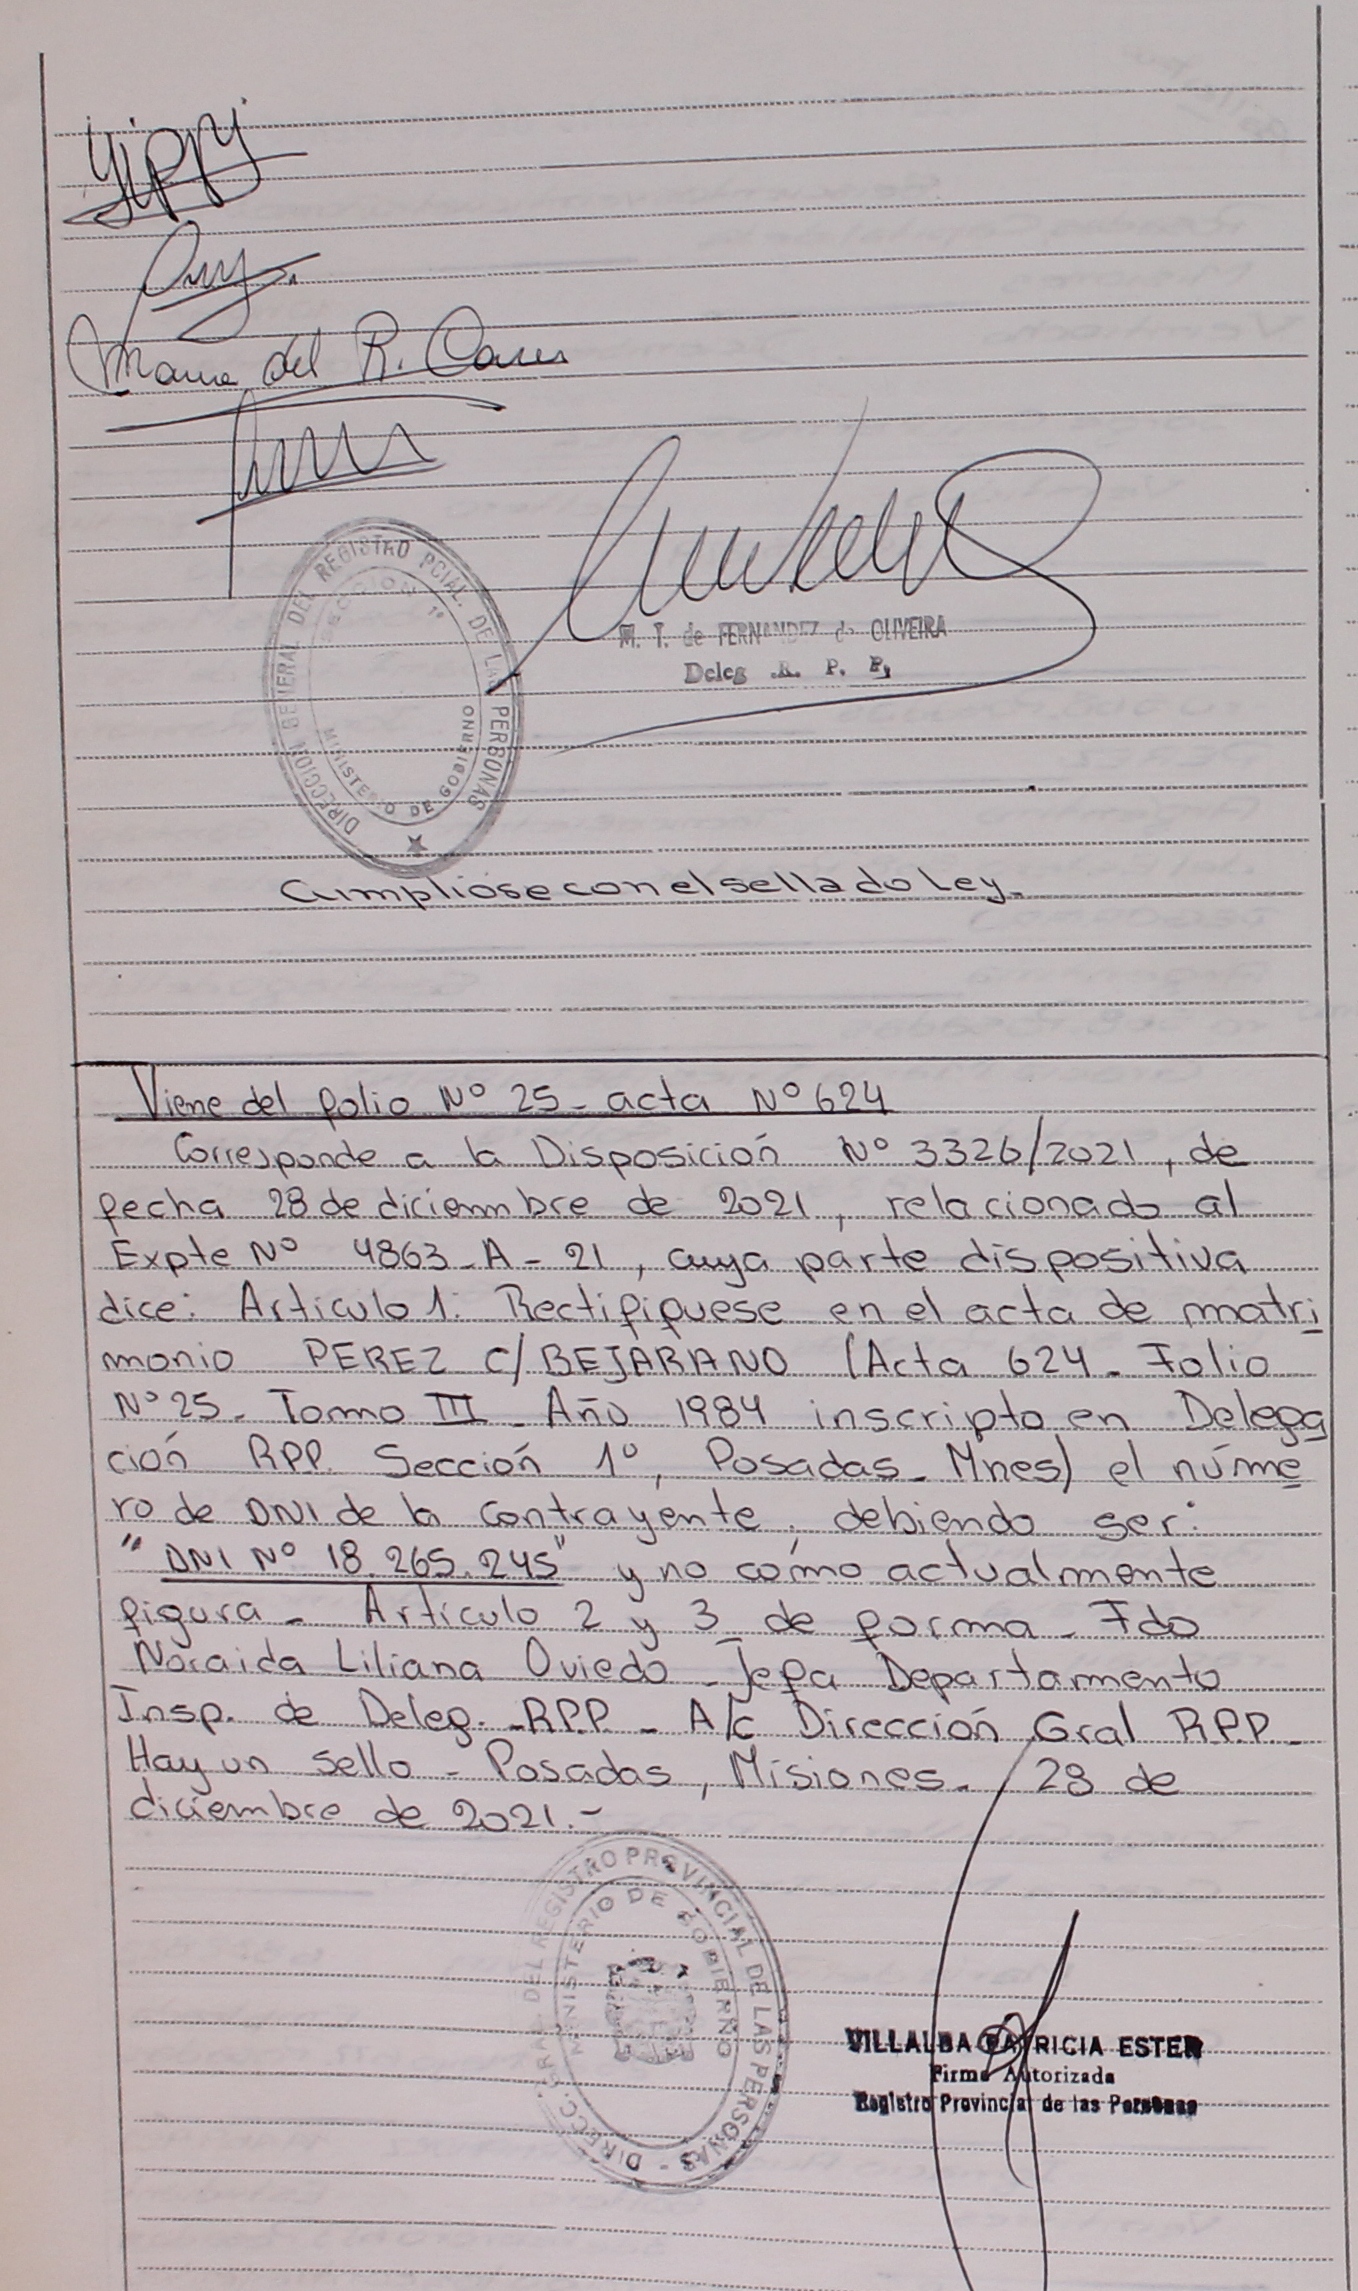 Maria del R.
DIRECCION GENERAL DEL REGISTRO PCIAL. DE LAS PERSONAS
SECCION 1º
MINISTERIO DE GOBIERNO
M. T. de FERNANDEZ de OLIVEIRA
Deleg. R. P. P.
Cumpliose con el sellado Ley.
Viene del folio Nº 25 - acta Nº 624
Corresponde a la Disposición Nº 3326/2021, de
fecha 28 de diciembre de 2021, relacionado al
Expte Nº 4863 - A - 21, cuya parte dispositiva
dice: Artículo 1: Rectifíquese en el acta de matri
monio PEREZ C/ BEJARANO (Acta 624 - Folio
Nº 25 - Tomo III - Año 1984 inscripto en Delega
ción RPP. Sección 1º, Posadas - Mnes) el núme
ro de DNI de la contrayente, debiendo ser:
"DNI Nº 18.265.245" y no cómo actualmente
figura - Artículo 2 y 3 de forma - Fdo
Noraida Liliana Oviedo - Jefa Departamento
Insp. de Deleg. - R.P.P - A/c Dirección Gral R.P.P -
Hay un sello - Posadas, Misiones - 28 de
diciembre de 2021.-
DIRECC. GRAL. DEL REGISTRO PROVINCIAL DE LAS PERSONAS -
MINISTERIO DE GOBIERNO
VILLALBA PATRICIA ESTER
Firma Autorizada
Registro Provincial de las Personas